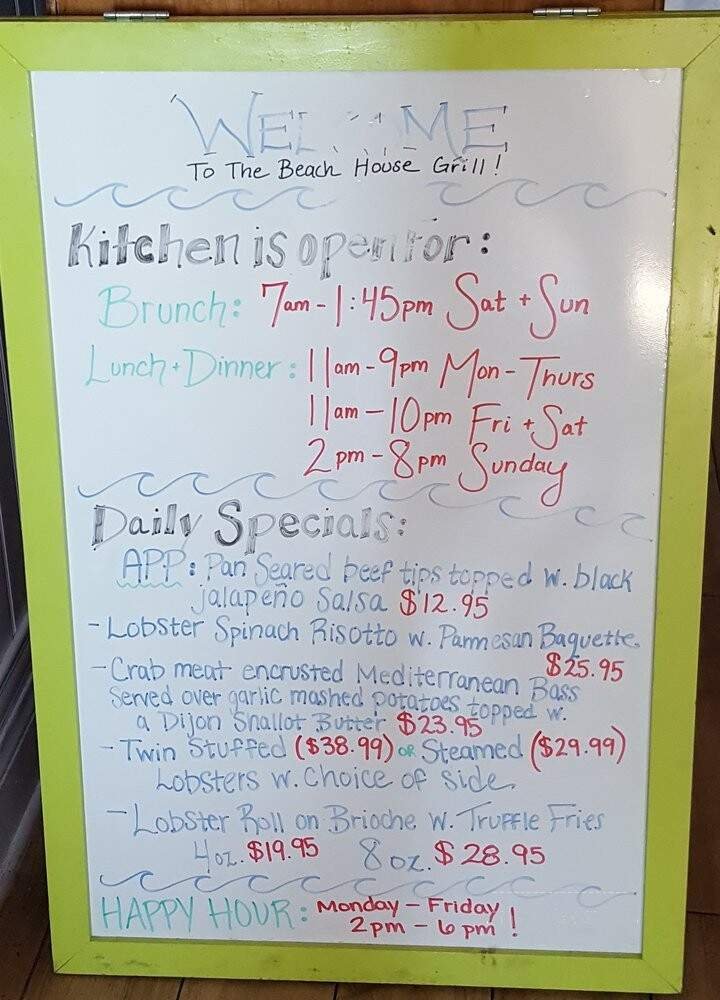 WELCOME
To The Beach House Grill!
Kitchen is open for:
Brunch: 7am - 1:45pm Sat + Sun
Lunch + Dinner: 11am - 9pm Mon - Thurs
11am - 10pm Fri + Sat
2pm - 8pm Sunday
Daily Specials:
APP: Pan Seared beef tips topped w. black
jalapeño Salsa $12.95
- Lobster Spinach Risotto w. Parmesan Baguette
$25.95
- Crab meat encrusted Mediterranean Bass
Served over garlic mashed potatoes topped w.
a Dijon Shallot Butter $23.95
- Twin Stuffed ($38.99) OR Steamed ($29.99)
Lobsters w. Choice of side
- Lobster Roll on Brioche w. Truffle Fries
4oz. $19.95 8oz. $28.95
HAPPY HOUR: Monday - Friday
2pm - 6pm!